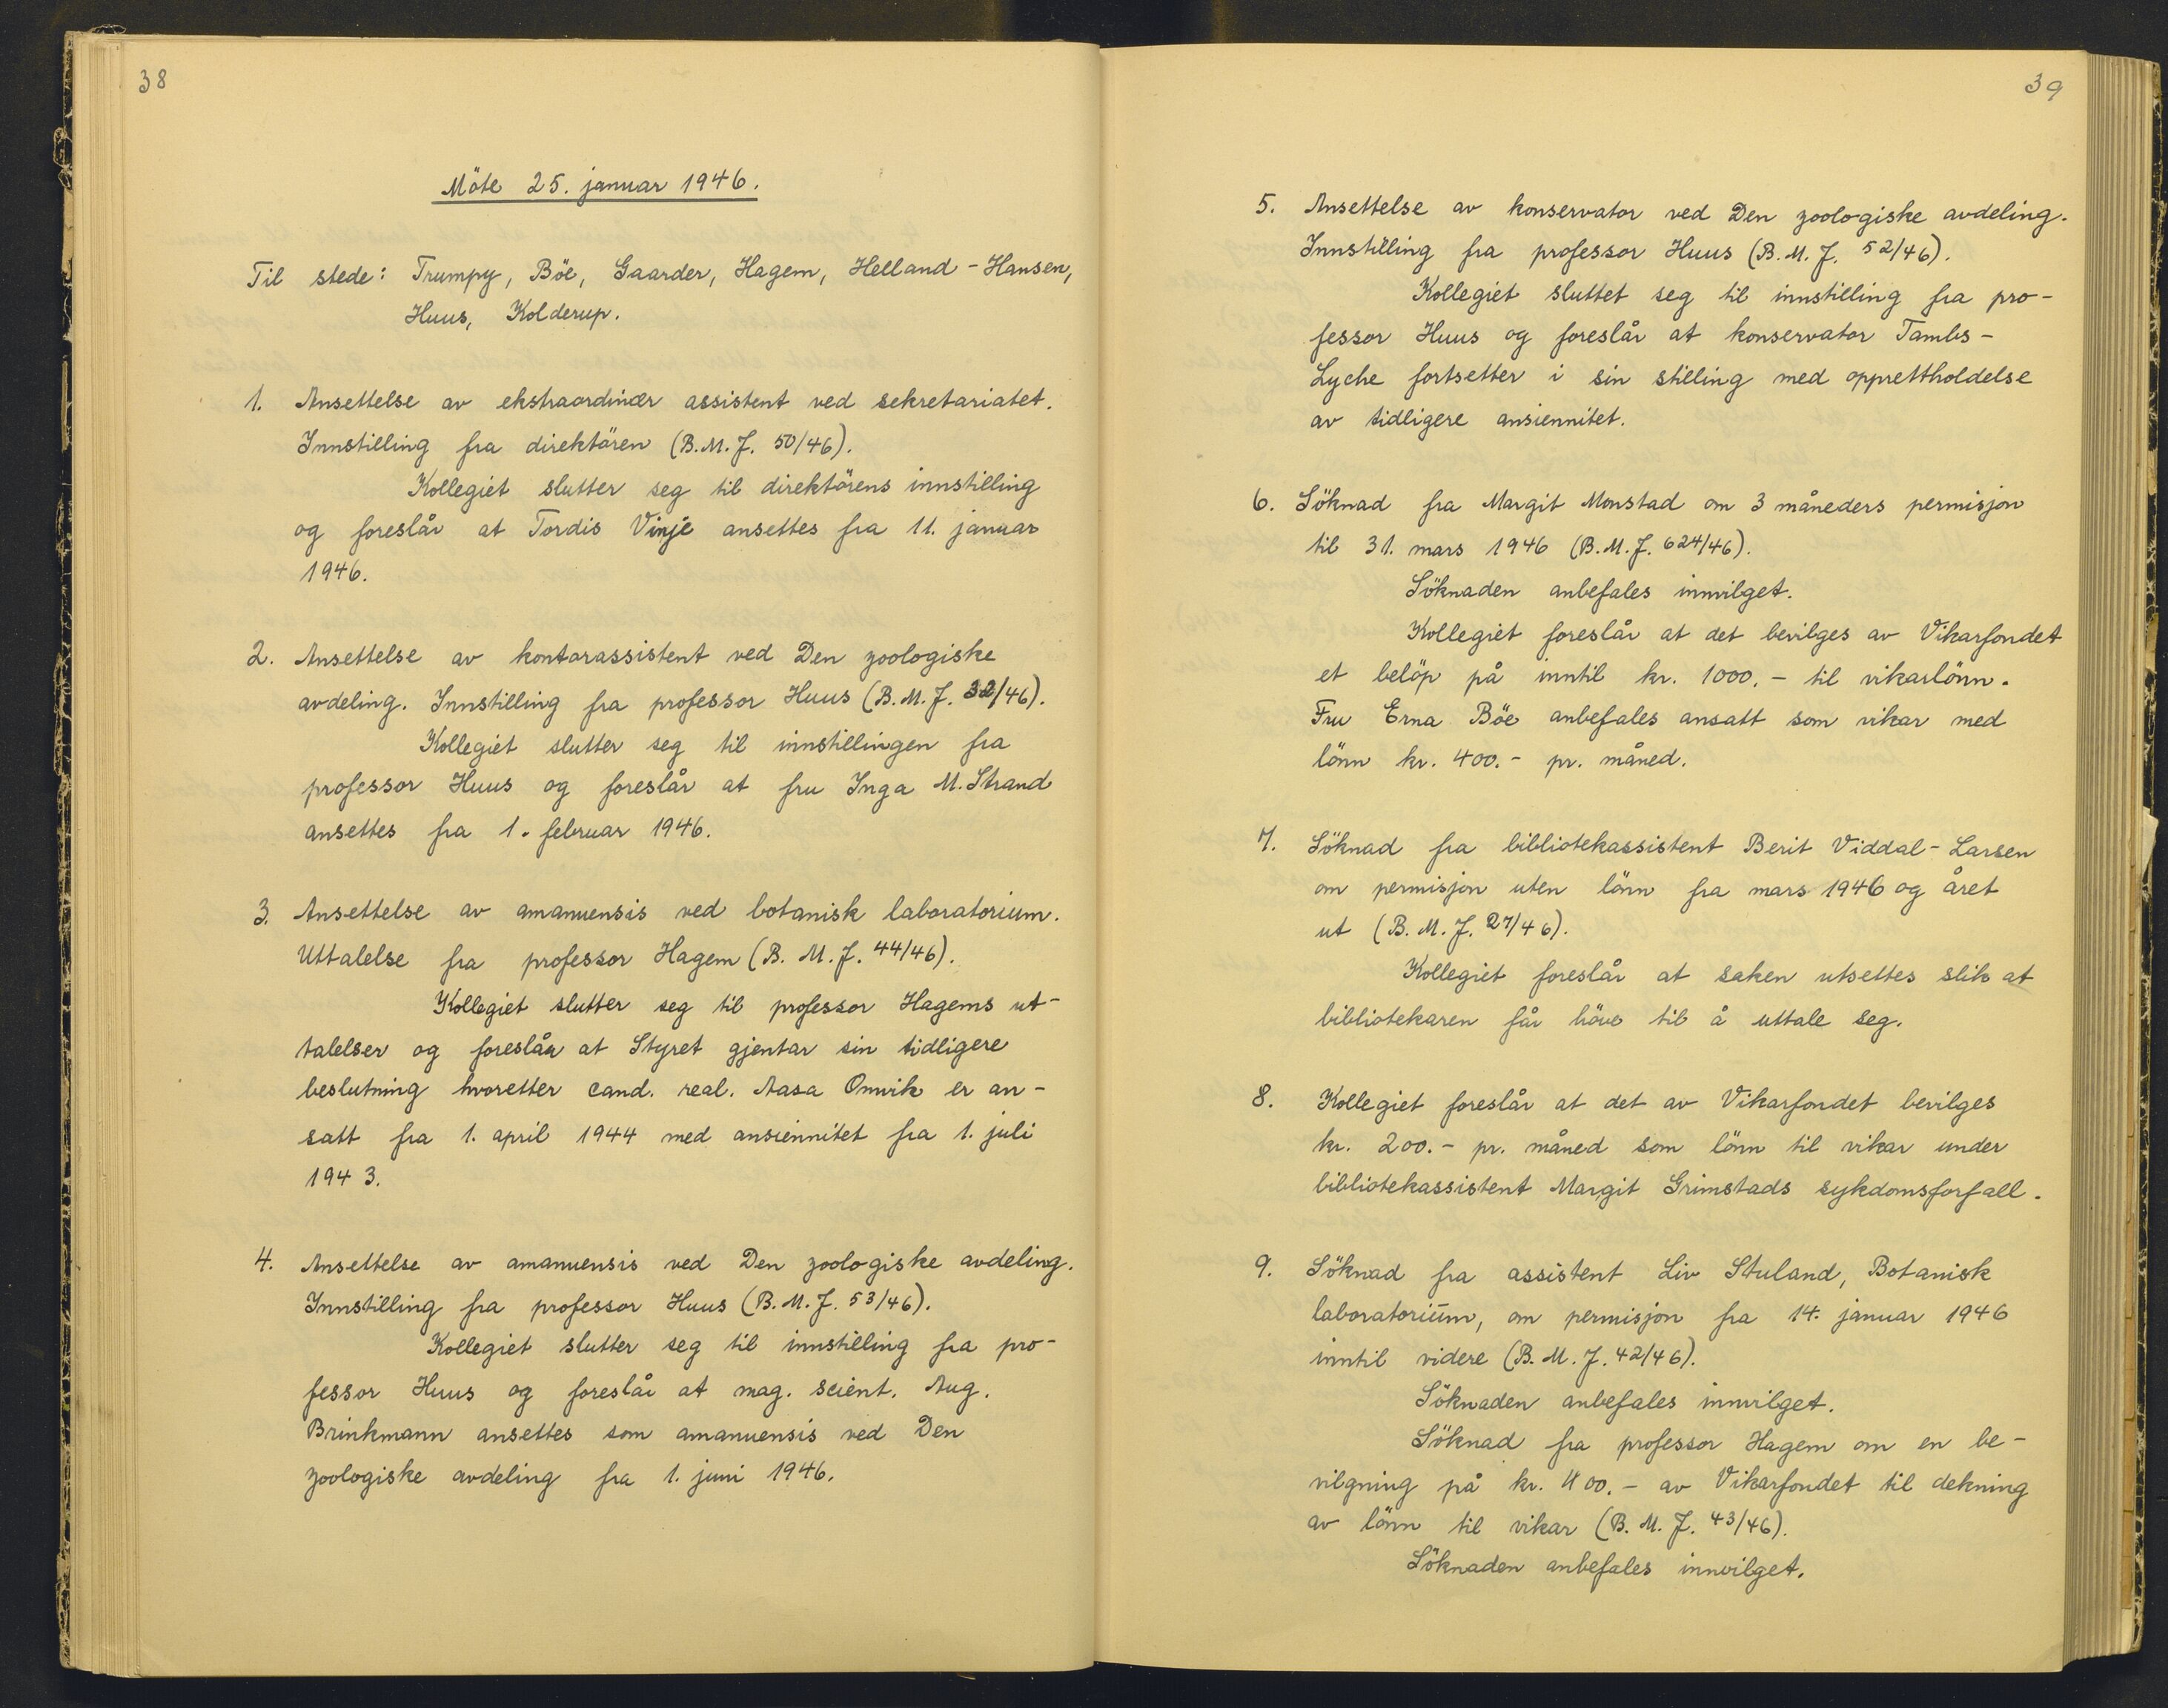 38
Möte 25. januar 1946.
Til stede: Trumpy, Böe, Gaarder, Hagem, Helland-Hansen,
Huus, Kolderup.
1. Ansettelse av ekstraordinær assistent ved sekretariatet.
Innstilling fra direktören (B.M.J. 50/46).
Kollegiet slutter seg til direktörens innstilling
og foreslår at Tordis Vinje ansettes fra 11. januar
1946.
2. Ansettelse av kontorassistent ved Den zoologiske
avdeling. Innstilling fra professor Huus (B.M.J. 32/46).
Kollegiet slutter seg til innstillingen fra
professor Huus og foreslår at fru Inga M. Strand
ansettes fra 1. februar 1946.
3. Ansettelse av amanuensis ved botanisk laboratorium.
Uttalelse fra professor Hagem (B. M. J. 44/46).
Kollegiet slutter seg til professor Hagems ut-
talelser og foreslår at Styret gjentar sin tidligere
beslutning hvoretter cand. real. Aasa Omvik er an-
satt fra 1. april 1944 med ansiennitet fra 1. juli
1943.
4. Ansettelse av amanuensis ved Den zoologiske avdeling.
Innstilling fra professor Huus (B.M.J. 53/46).
Kollegiet slutter seg til innstilling fra pro-
fessor Huus og foreslår at mag. scient. Aug.
Brinkmann ansettes som amanuensis ved Den
zoologiske avdeling fra 1. juni 1946.
39
5. Ansettelse av konservator ved Den zoologiske avdeling.
Innstilling fra professor Huus (B.M.J. 52/46).
Kollegiet sluttet seg til innstilling fra pro-
fessor Huus og foreslår at konservator Tambs-
Lyche fortsetter i sin stilling med opprettholdelse
av tidligere ansiennitet.
6. Söknad fra Margit Monstad om 3 måneders permisjon
til 31. mars 1946 (B.M.J. 624/46).
Söknaden anbefales innvilget.
Kollegiet foreslår at det bevilges av Vikarfondet
et belöp på inntil kr. 1000.- til vikarlönn.
Fru Erna Böe anbefales ansatt som vikar med
lönn kr. 400.- pr. måned.
7. Söknad fra bibliotekassistent Berit Viddal-Larsen
om permisjon uten lönn fra mars 1946 og året
ut (B. M. J. 27/46).
Kollegiet foreslår at saken utsettes slik at
bibliotekaren får höve til å uttale seg.
8. Kollegiet foreslår at det av Vikarfondet bevilges
kr. 200.- pr. måned som lönn til vikar under
bibliotekassistent Margit Grimstads sykdomsforfall.
9. Söknad fra assistent Liv Stuland, Botanisk
laboratorium, om permisjon fra 14. januar 1946
inntil videre (B. M. J. 42/46).
Söknaden anbefales innvilget.
Söknad fra professor Hagem om en be-
vilgning på kr. 400.- av Vikarfondet til dekning
av lönn til vikar (B. M. J. 43/46).
Söknaden anbefales innvilget.